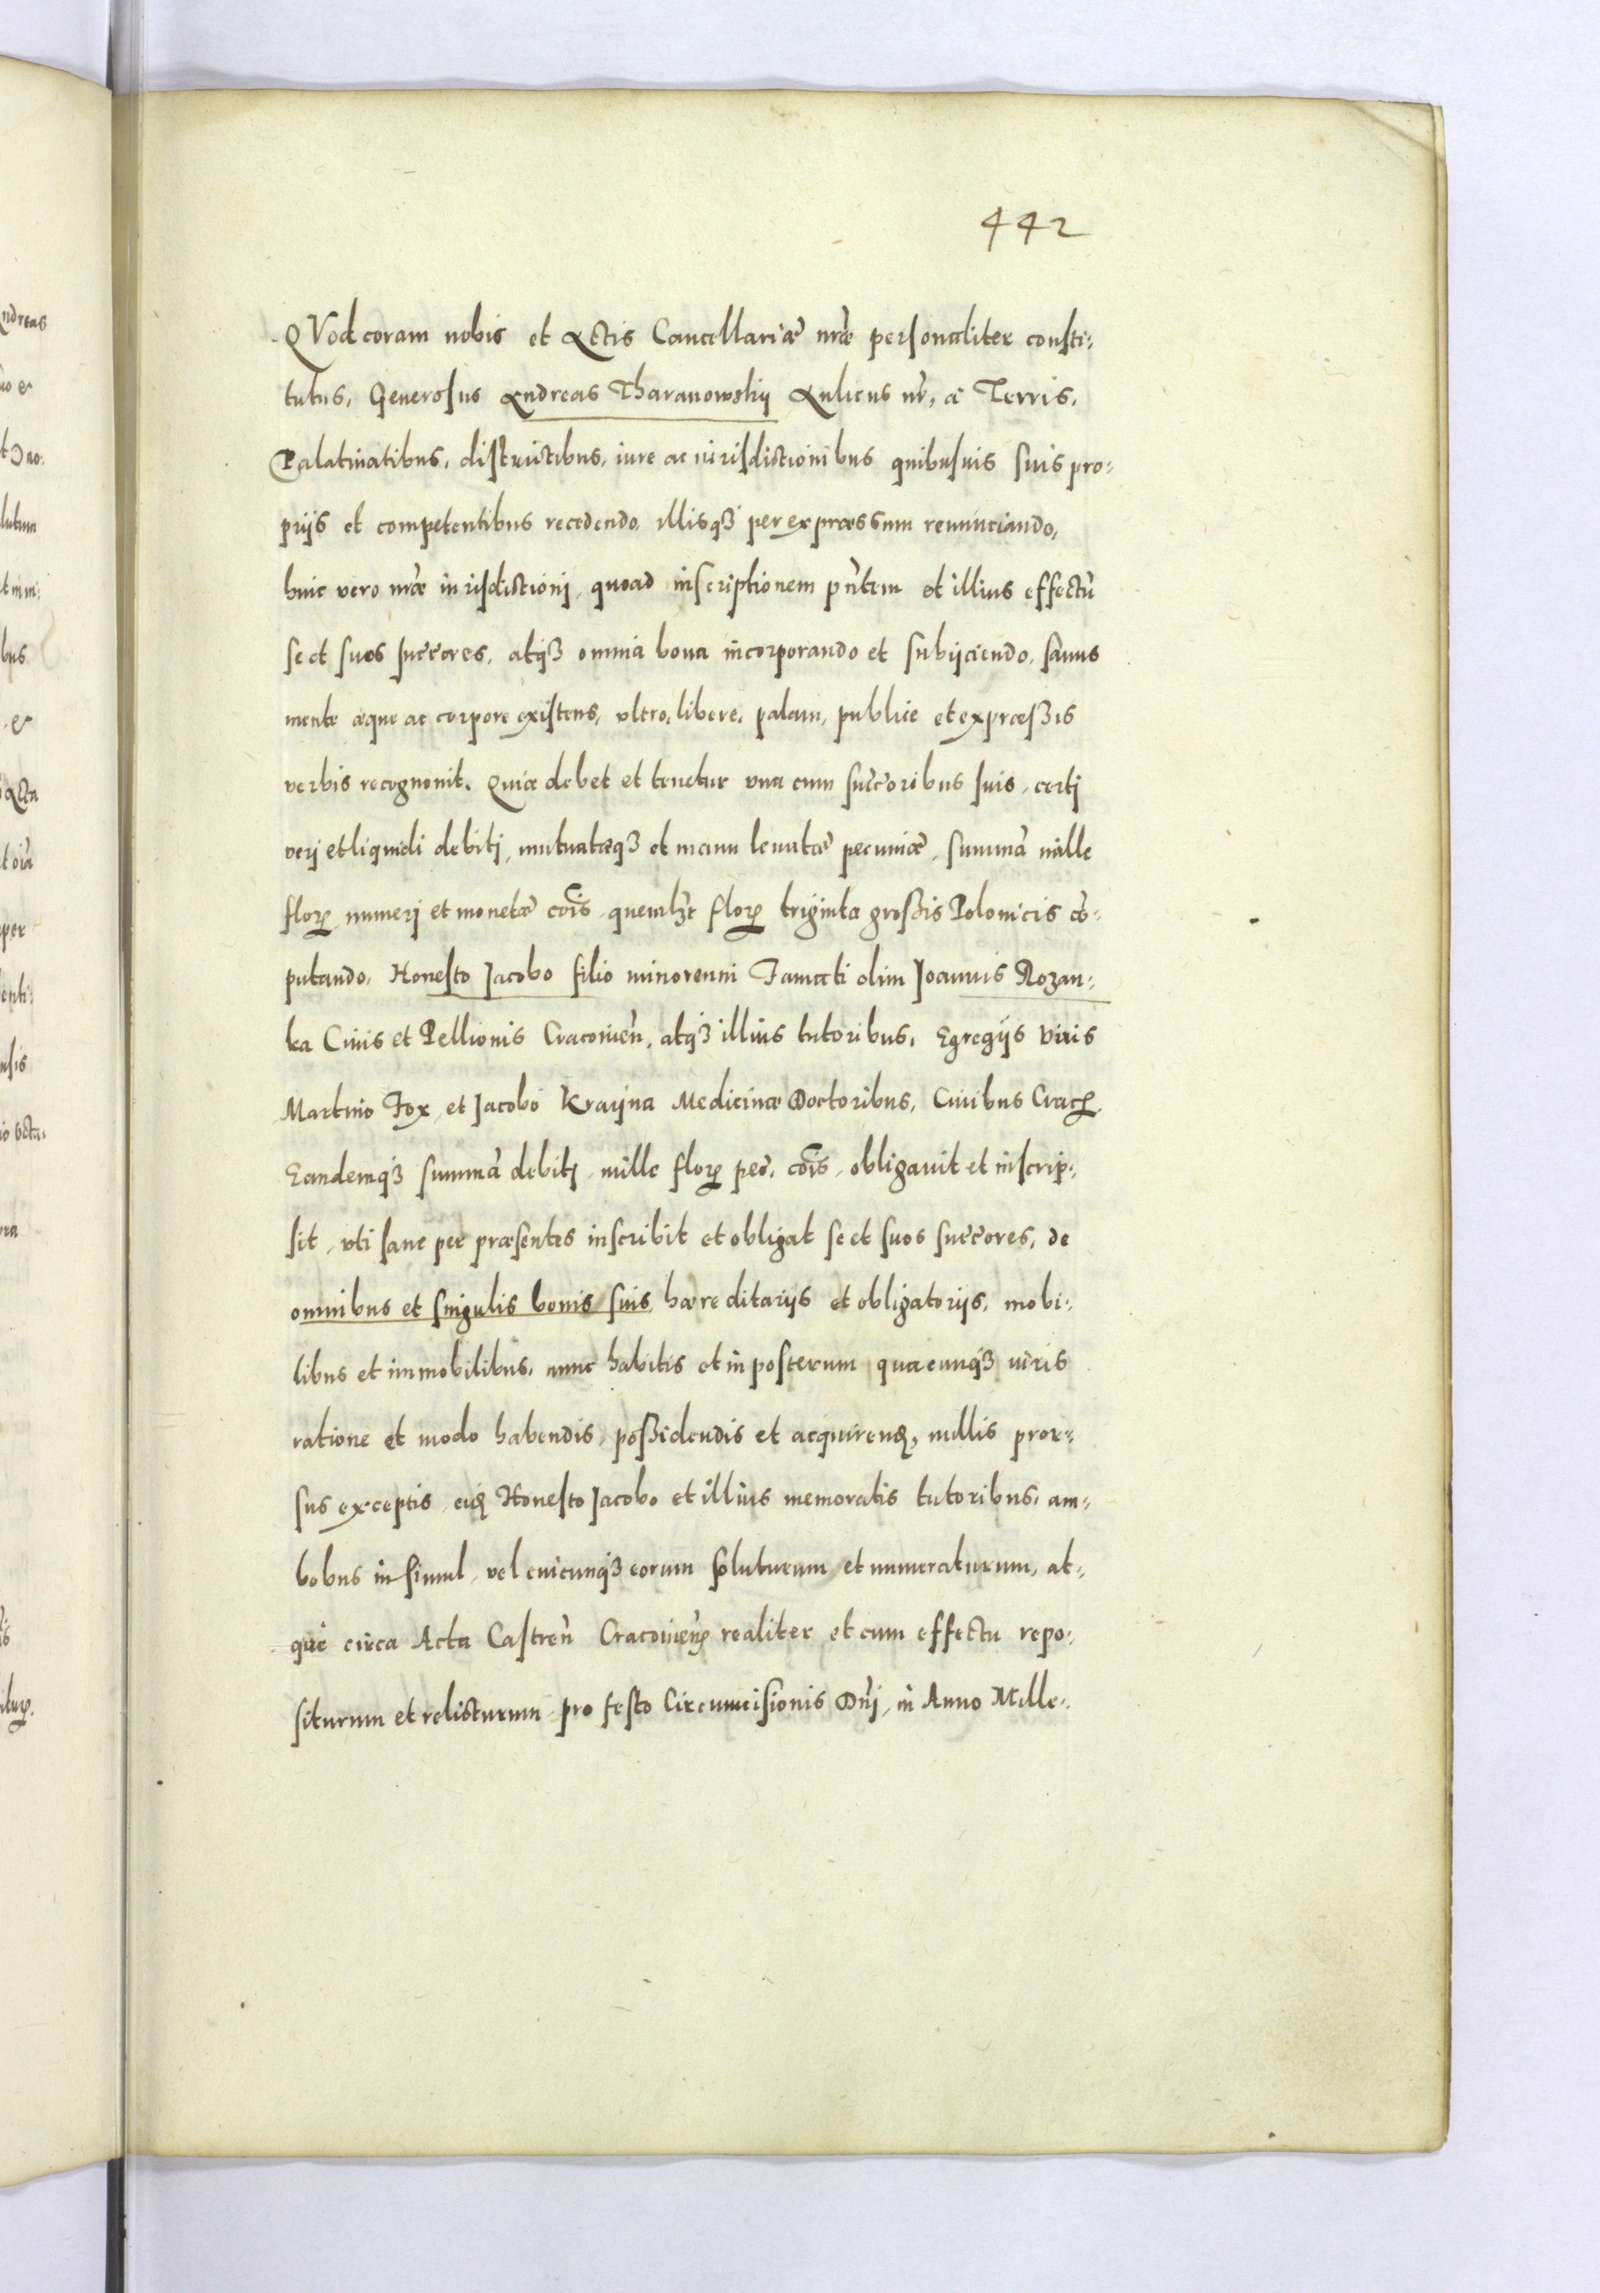 442
QVod coram nobis et Actis Cancellariæ nr̃æ personaliter consti-
tutus, Generosus Andreas Tharanowskij Aulicus nr̃, a Terris,
Palatinatibus, districtibus, iure ac iurisdictionibus quibusuis suis pro-
prijs et competentibus recedendo, illisqꝫ per expræssum renunciando,
huic vero nr̃æ iurisdictionj, quoad inscriptionem pñtem et illius effectũ
se et suos succ̃ores, atqꝫ omnia bona incorporando et subijciendo, sanus
mente æque ac corpore existens, vltro, libere, palam, publice et expræßis
verbis recognouit. Quia debet et tenetur vna cum succ̃oribus suis, certj
verj et liquidi debitj, mutuatæqꝫ et manu leuatæ pecuniæ, summã mille
florꝝ numerj et monetæ cõis, quemlꝫt florꝝ triginta großis Polonicis cõ-
putando, Honesto Jacobo filio minorenni Famati olim Joannis Rozan-
ka Ciuis et Pellionis Cracouieñ, atqꝫ illius tutoribus, Egregijs Viris
Martino Fox et Jacobo Krayna Medicinæ Doctoribus, Ciuibus Cracꝝ.
Eandemqꝫ summã debitj, mille florꝝ pec̃, cõis, obligauit et inscrip-
sit, vti sane per præsentes inscribit et obligat se et suos succ̃ores, de
omnibus et singulis bonis suis hæreditarijs et obligatorijs, mobi-
libus et immobilibus, nunc habitis et in posterum quacunqꝫ iuris
ratione et modo habendis, poßidendis et acquirenđ, nullis pror-
sus exceptis, eiđ Honesto Jacobo et illius memoratis tutoribus, am-
bobus insimul, vel cuicunqꝫ eorum soluturum et numeraturum, at-
que circa Acta Castreñ Cracouieñ realiter et cum effectu repo-
siturum et relicturum pro festo Circumcisionis Dñj, in Anno Mille-